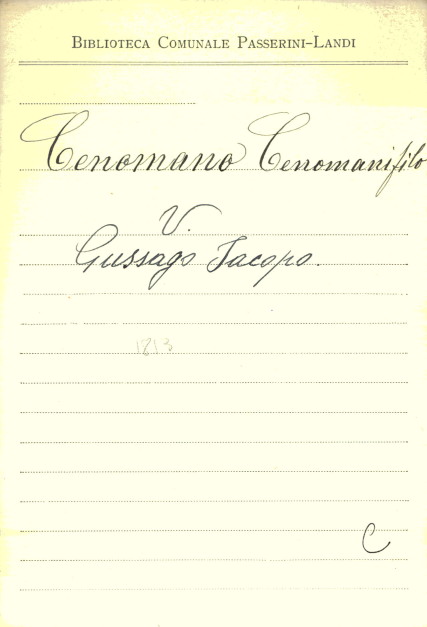 BIBLIOTECA COMUNALE PASSERINI-LANDI
Cenomano Cenomanifilo
V.
Gussago Jacopo.
1813
C